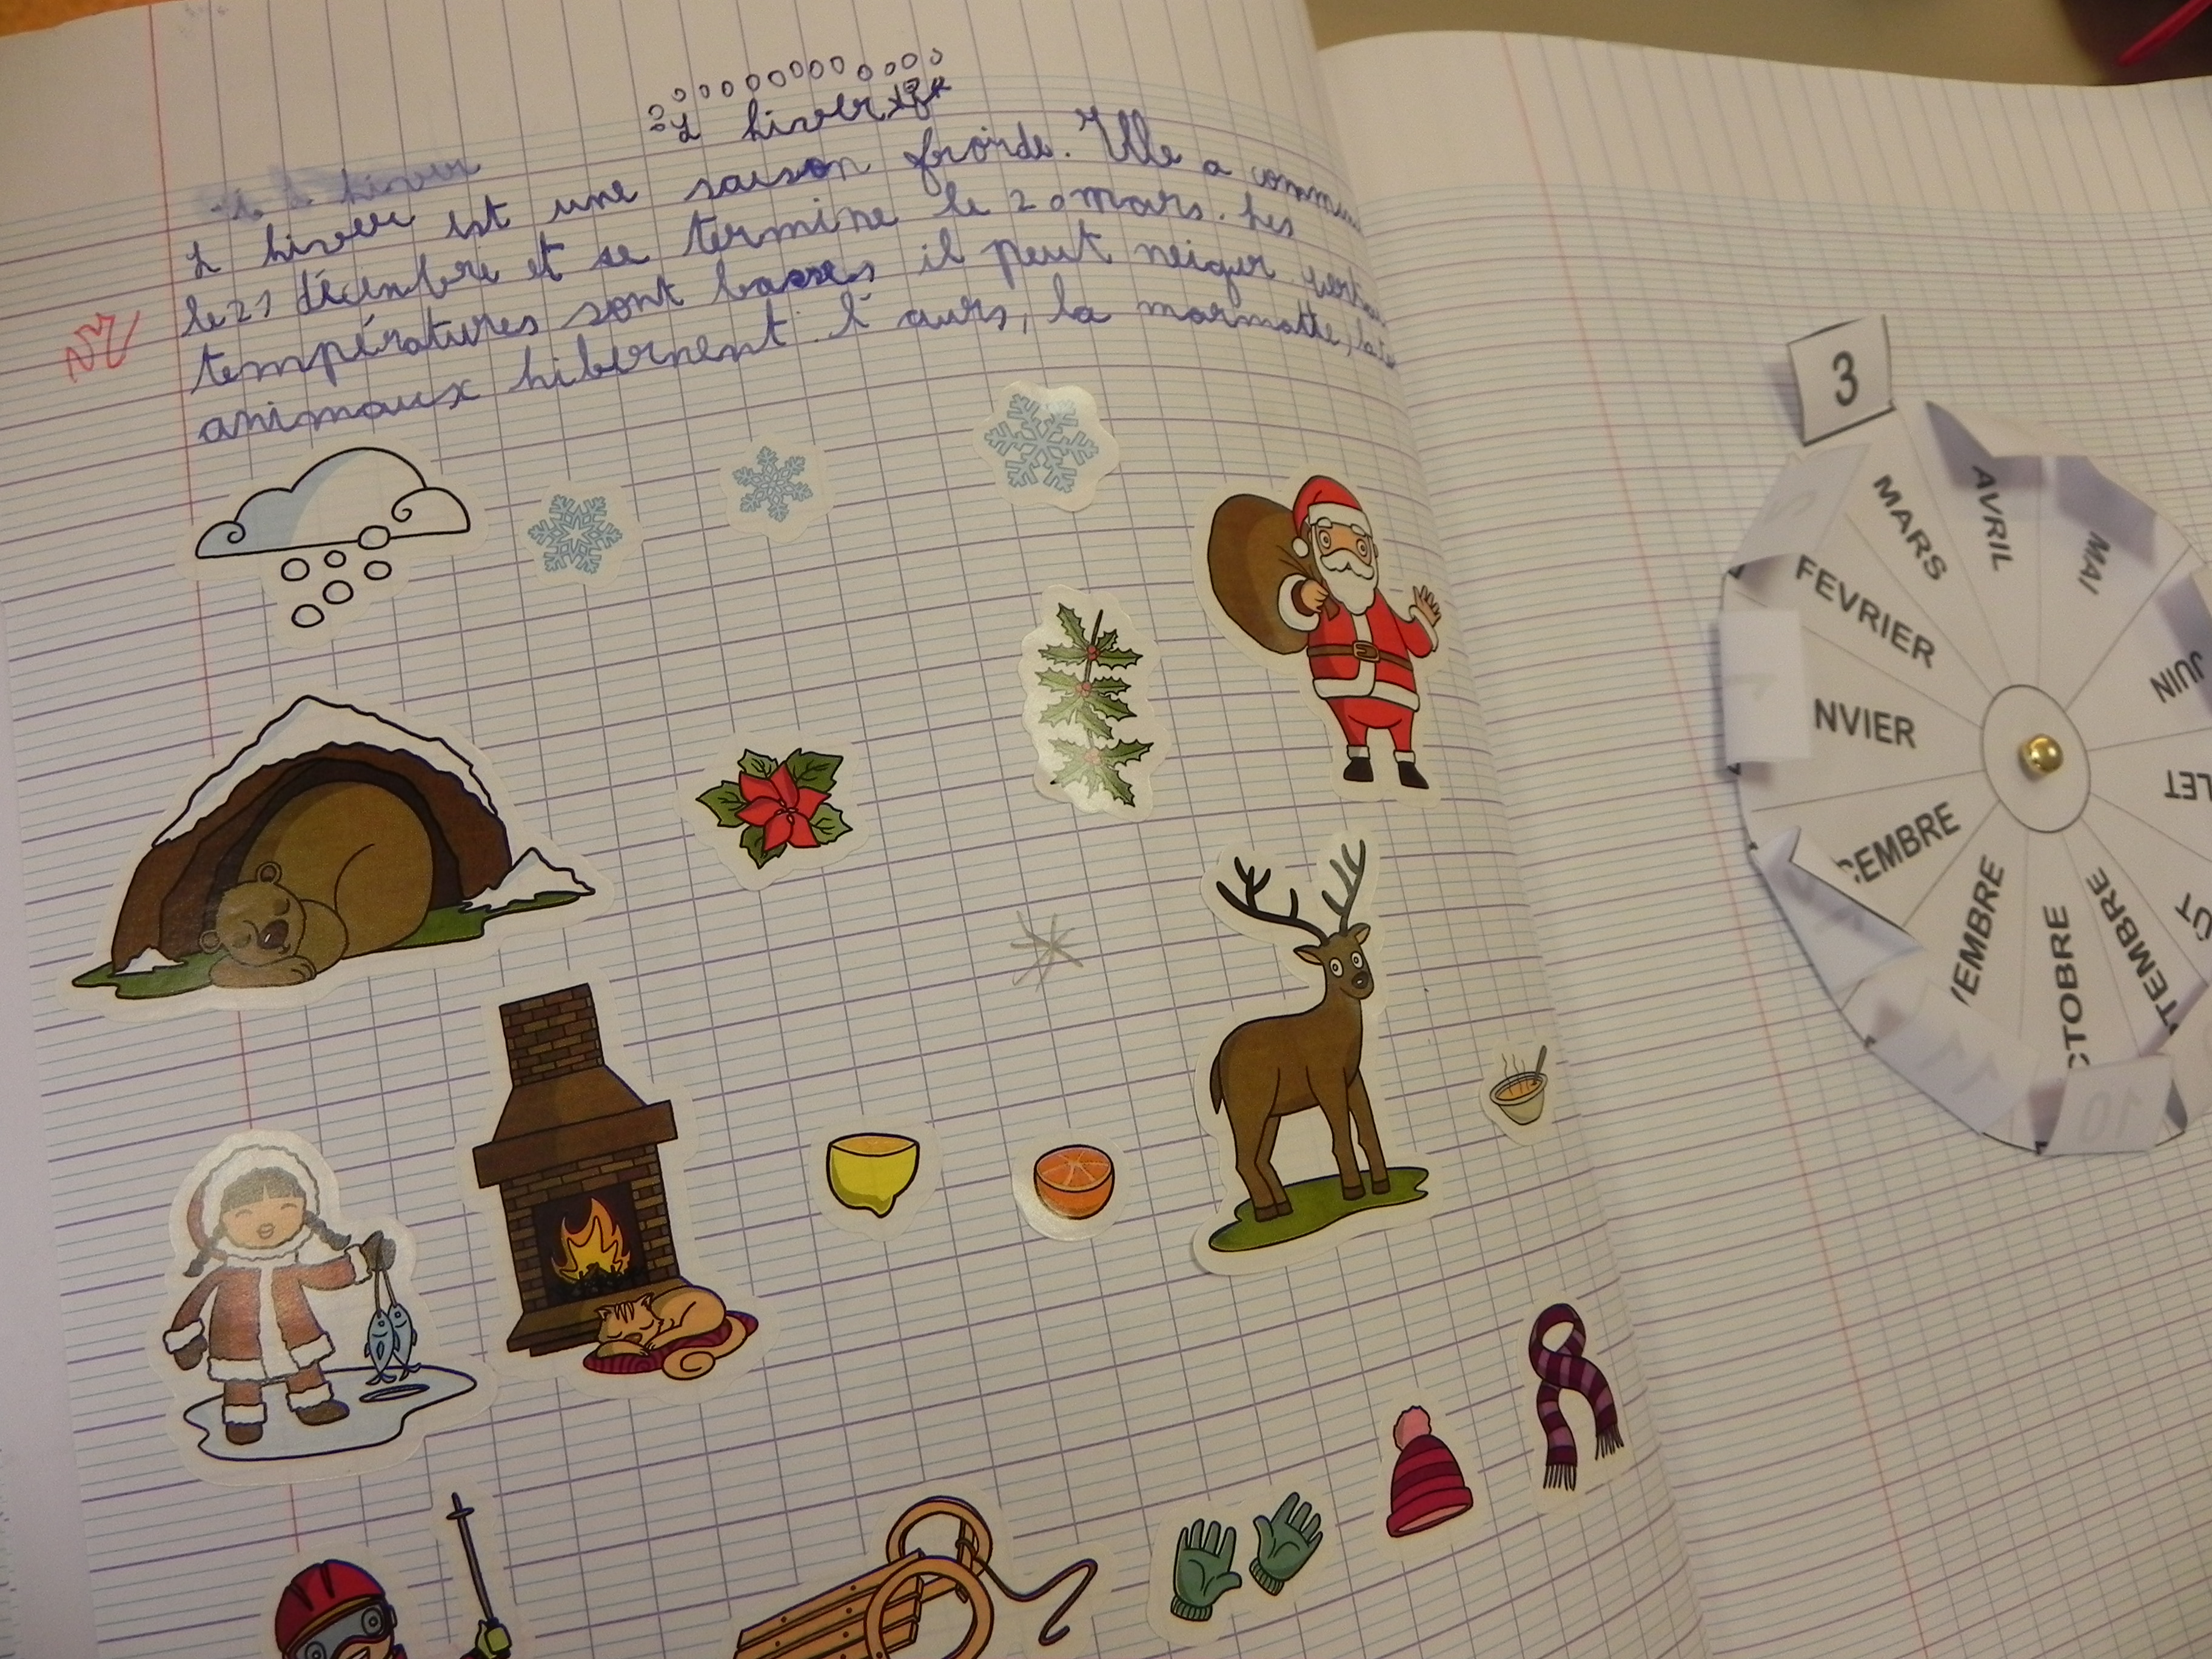 L hiver
L hiver
L hiver est une saison froide. Elle a commencé
le 21 décembre et se termine le 20 mars. Les
températures sont basses il peut neiger certains
animaux hibernent. L'ours, la marmotte, la
3
AVRIL
MAI
MARS
JUIN
FEVRIER
NVIER
LET
CEMBRE
UT
EMBRE
TEMBRE
CTOBRE
10
11